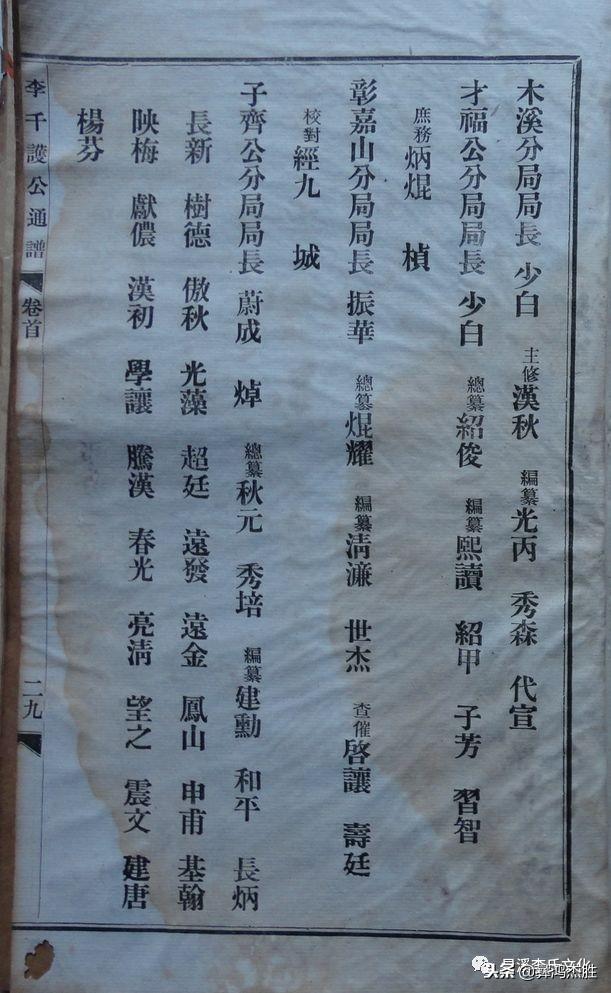 木溪分局局長 少白 主修漢秋 編纂光丙 秀森 代宣
才福公分局局長 少白 總纂紹俊 編纂熙讀 紹甲 子芳 習智
庶務炳焜 楨
彰嘉山分局局長 振華 總纂焜耀 編纂清濂 世杰 查催啓讓 壽廷
校對經九 城
子齊公分局局長 蔚成 焯 總纂秋元 秀培 編纂建勳 和平 長炳
長新 樹德 傲秋 光藻 超廷 遠發 遠金 鳳山 申甫 基翰
映梅 獻儂 漢初 學讓 騰漢 春光 亮淸 望之 震文 建唐
楊芬
李千護公通譜 卷首 二九
溪李氏文化
头条@彝鸿杰胜